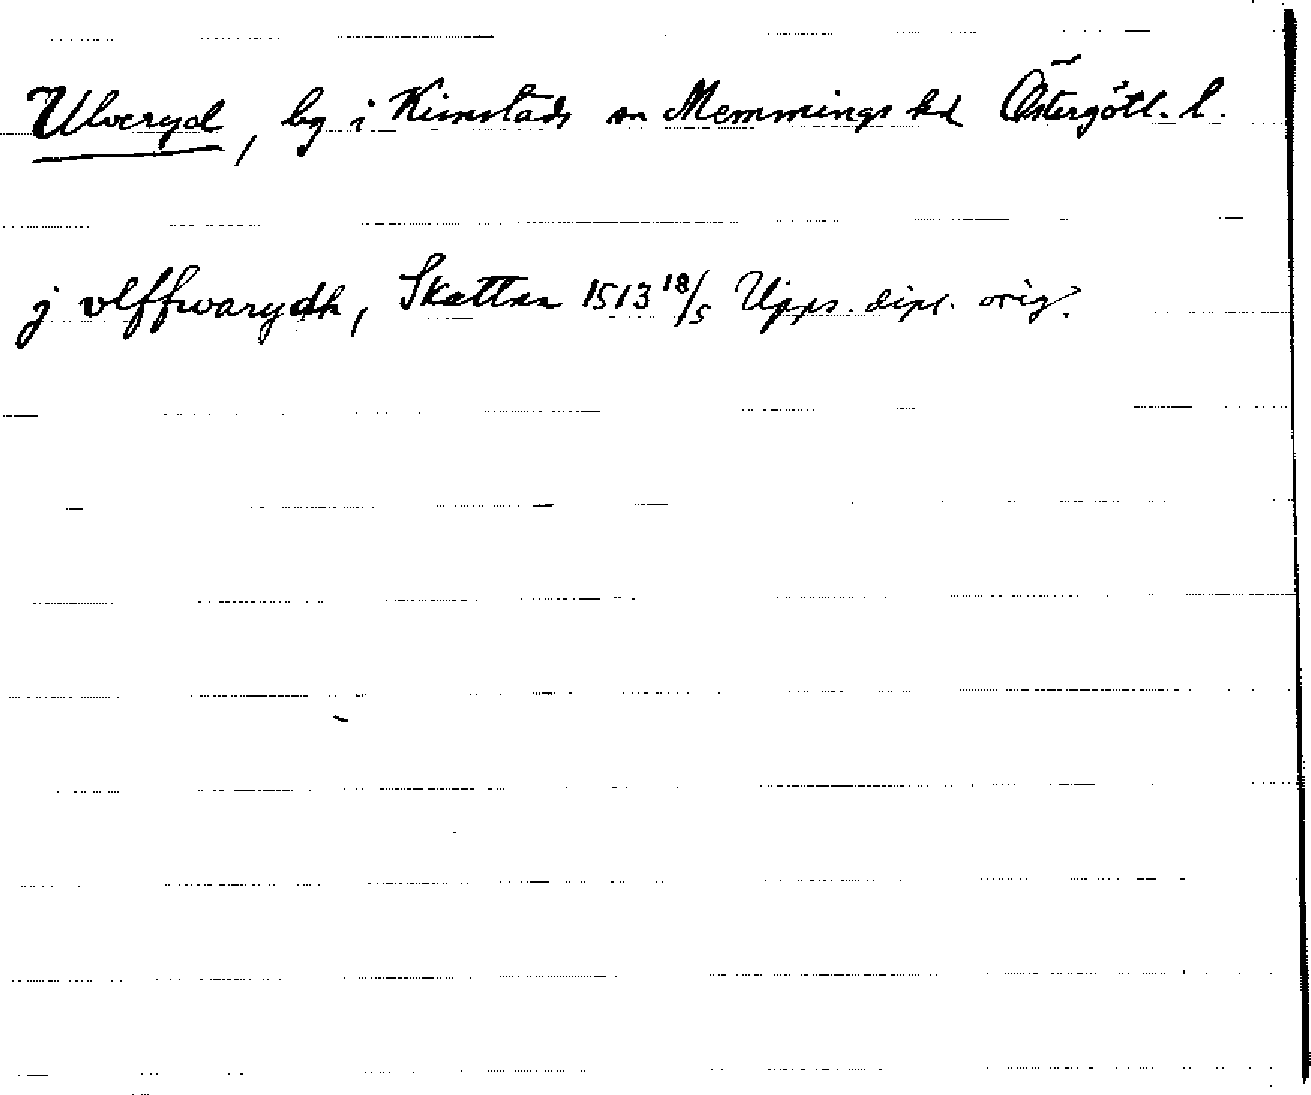 Ulveryd, by i Kimstads sn Memmings hd Östergötl. l.
j vlffwarydh, Skattna 1513 18/5 Upps. dipl. orig.